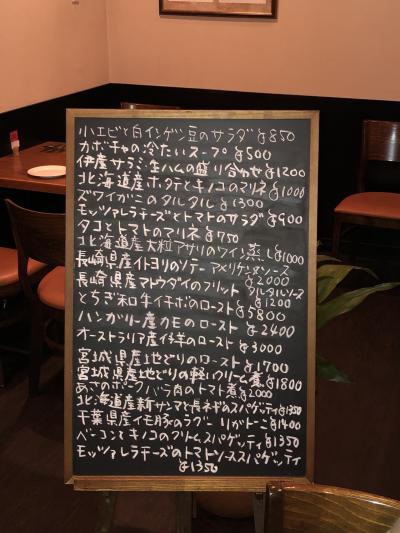 小エビと白インゲン豆のサラダ ¥850
カボチャの冷たいスープ ¥500
伊産サラミ、生ハムの盛り合わせ ¥1200
北海道産ホタテとキノコのマリネ ¥1000
ズワイガニのタルタル ¥1300
モッツァレラチーズとトマトのサラダ ¥900
タコとトマトのマリネ ¥750
北海道産大粒アサリのワイン蒸し ¥1000
長崎県産イトヨリのソテー アメリケーヌソース
¥2000
長崎県産マトウダイのフリット タルタルソース
¥1200
とちぎ和牛イチボのロースト ¥5800
ハンガリー産カモのロースト ¥2400
オーストラリア産仔羊のロースト ¥3000
宮城県産地どりのロースト ¥1700
宮城県産地どりの軽いクリーム煮 ¥1800
あさのポークバラ肉のトマト煮 ¥2000
北海道産新サンマと長ネギのスパゲッティ ¥1350
千葉県産イモ豚のラグー リガトーニ ¥1400
ベーコンとキノコのクリームスパゲッティ ¥1350
モッツァレラチーズのトマトソーススパゲッティ
¥1350